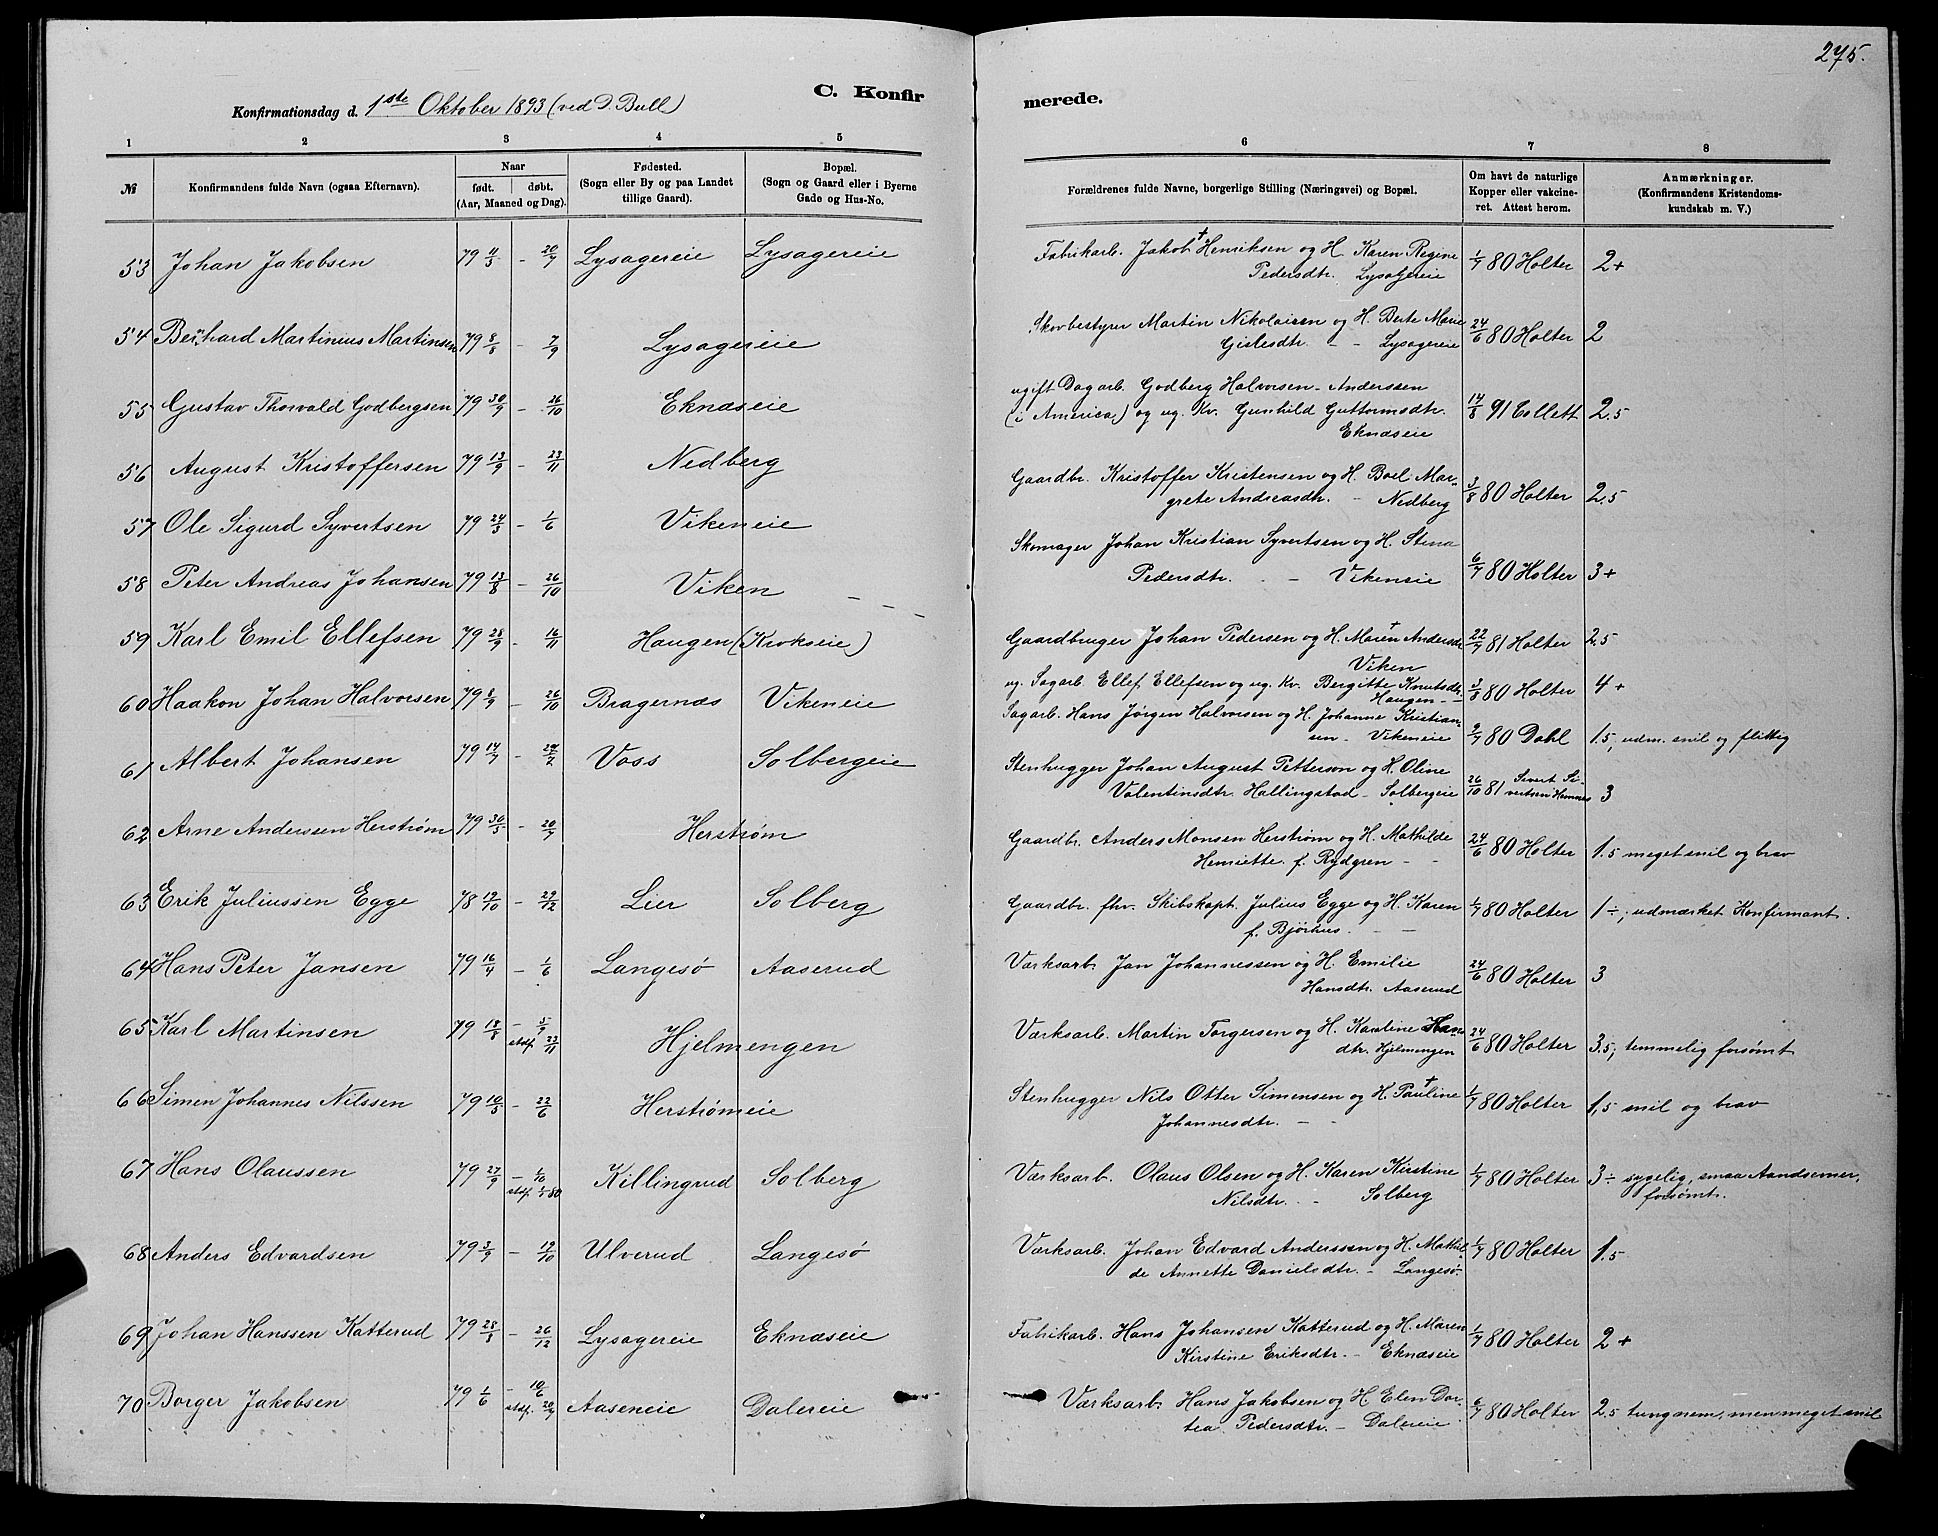 275.
Konfirmationsdag d. 1ste Oktober 1893 (ved D. Bull)
C. Konfir
merede.
1 2 3 4 5 6 7 8
№
Konfirmandens fulde Navn (ogsaa Efternavn).
Naar
født. døbt.
(Aar, Maaned og Dag).
Fødested.
(Sogn eller By og paa Landet
tillige Gaard).
Bopæl.
(Sogn og Gaard eller i Byerne
Gade og Hus-No.
Forældrenes fulde Navne, borgerlige Stilling (Næringsvei) og Bopæl.
Om havt de naturlige
Kopper eller vakcine-
ret. Attest herom.
Anmærkninger.
(Konfirmandens Kristendoms-
kundskab m. V.)
53 Johan Jakobsen 79 4/5 - 20/7 Lysagereie Lysagereie
Fabrikarb. Jakob + Henriksen og H. Karen Regine
Pedersdtr. Lysagereie 1/7 80 Holter 2+
54 Bernhard Martinius Martinsen 79 8/8 - 7/9 Lysagereie
Skovbestyrer Martin Nikolaisen og H. Berte Marie
Gislesdtr. - - Lysagereie 24/6 80 Holter 2
55 Gustav Thorvald Godbergsen 79 30/9 - 26/10 Eknæseie
ugift Dagarb. Godberg Halvorsen - Anderssen
(i America) og ug. Kv. Gunhild Guttormsdtr.
Eknæseie 14/8 91 Collett 2.5
56 August Kristoffersen 79 13/9 - 23/11 Nedberg
Gaardbr. Kristoffer Kristensen og H. Boel Mar-
grete Andreasdtr. - Nedberg 3/8 80 Holter 2.5
57 Ole Sigurd Syvertsen 79 24/3 - 1/6 Vikeneie
Skomager Johan Kristian Syvertsen og H. Stina
Pedersdtr. - Vikeneie 6/7 80 Holter 3+
58 Peter Andreas Johansen 79 13/8 - 26/10 Viken - - -
Gaardbruger Johan Pedersen og H. Maren + Andersdtr.
Viken 22/7 81 Holter 2.5
59 Karl Emil Ellefsen 79 28/9 - 16/11 Haugen (Krokseie)
ug. Sagarb. Ellef Ellefsen og ug. Kv. Bergitte Knutsdtr.
Haugen - - 3/8 80 Holter 4+
60 Haakon Johan Halvorsen 79 8/9 - 26/10 Bragernæs Vikeneie
Sagarb. Hans Jørgen Halvorsen og H. Johanne Kristian-
sen - Vikeneie 9/7 80 Dahl 1.5, udm. snil og flittig
61 Albert Johansen 79 14/7 - 27/7 Voss Solbergeie
Stenhugger Johan August Petterson og H. Oline
Valentinsdtr. Hallingstad - Solbergeie 26/10 81 Sivert Si-
vertsen Hemnes 3
62 Arne Anderssen Herstrøm 79 30/5 - 20/7 Herstrøm
Gaardbr. Anders Monsen Herstrøm og H. Mathilde
Henriette f. Rydgren - - 24/6 80 Holter 1.5 meget snil og brav
63 Erik Juliussen Egge 78 19/10 - 29/12 Lier Solberg
Gaardbr. fhv. Skibskapt. Julius Egge og H. Karen
f. Bjørhus. - - 1/7 80 Holter 1÷, udmærket Konfirmant.
64 Hans Peter Jansen 79 16/4 - 1/6 Langesø Aaserud
Værksarb. Jan Johannessen og H. Emilie
Hansdtr. Aaserud 24/6 80 Holter 3
65 Karl Martinsen 79 18/8 - 5/9
stdf. 23/11 Hjelmengen
Værksarb. Martin Torgersen og H. Karoline Hans-
dtr. Hjelmengen 24/6 80 Holter 3.5, temmelig forsømt
66 Simen Johannes Nilssen 79 10/5 - 22/6 Herstrømeie
Stenhugger Nils Otter Simensen og H. Pauline +
Johannesdtr. - - 1/7 80 Holter 1,5 snil og brav
67 Hans Olaussen 79 27/9 - 1/10
stdf. 1/1 80 Killingrud Solberg
Værksarb. Olaus Olsen og H. Karen Kirstine
Nilsdtr. - Solberg 1/7 80 Holter 3÷ sygelig, smaa Aandsevner,
forsømt.
68 Anders Edvardsen 79 3/9 - 19/10 Ulverud Langesø
Værksarb. Johan Edvard Anderssen og H. Mathil-
de Annette Danielsdtr. - Langesø. 1/7 80 Holter 1.5
69 Johan Hanssen Katterud 79 28/8 - 26/12 Lysagereie Eknæseie
Fabrikarb. Hans Johansen Katterud og H. Maren
Kirstine Eriksdtr. - Eknæseie 1/7 80 Holter 2+
70 Borger Jakobsen 79 1/6 - 10/6
stdf. 20/7 Aaseneie Dalereie
Værksarb. Hans Jakobsen og H. Elen Dor-
tea Pedersdtr. - Dalereie 6/7 80 Holter 2.5 tungnem, men meget snil